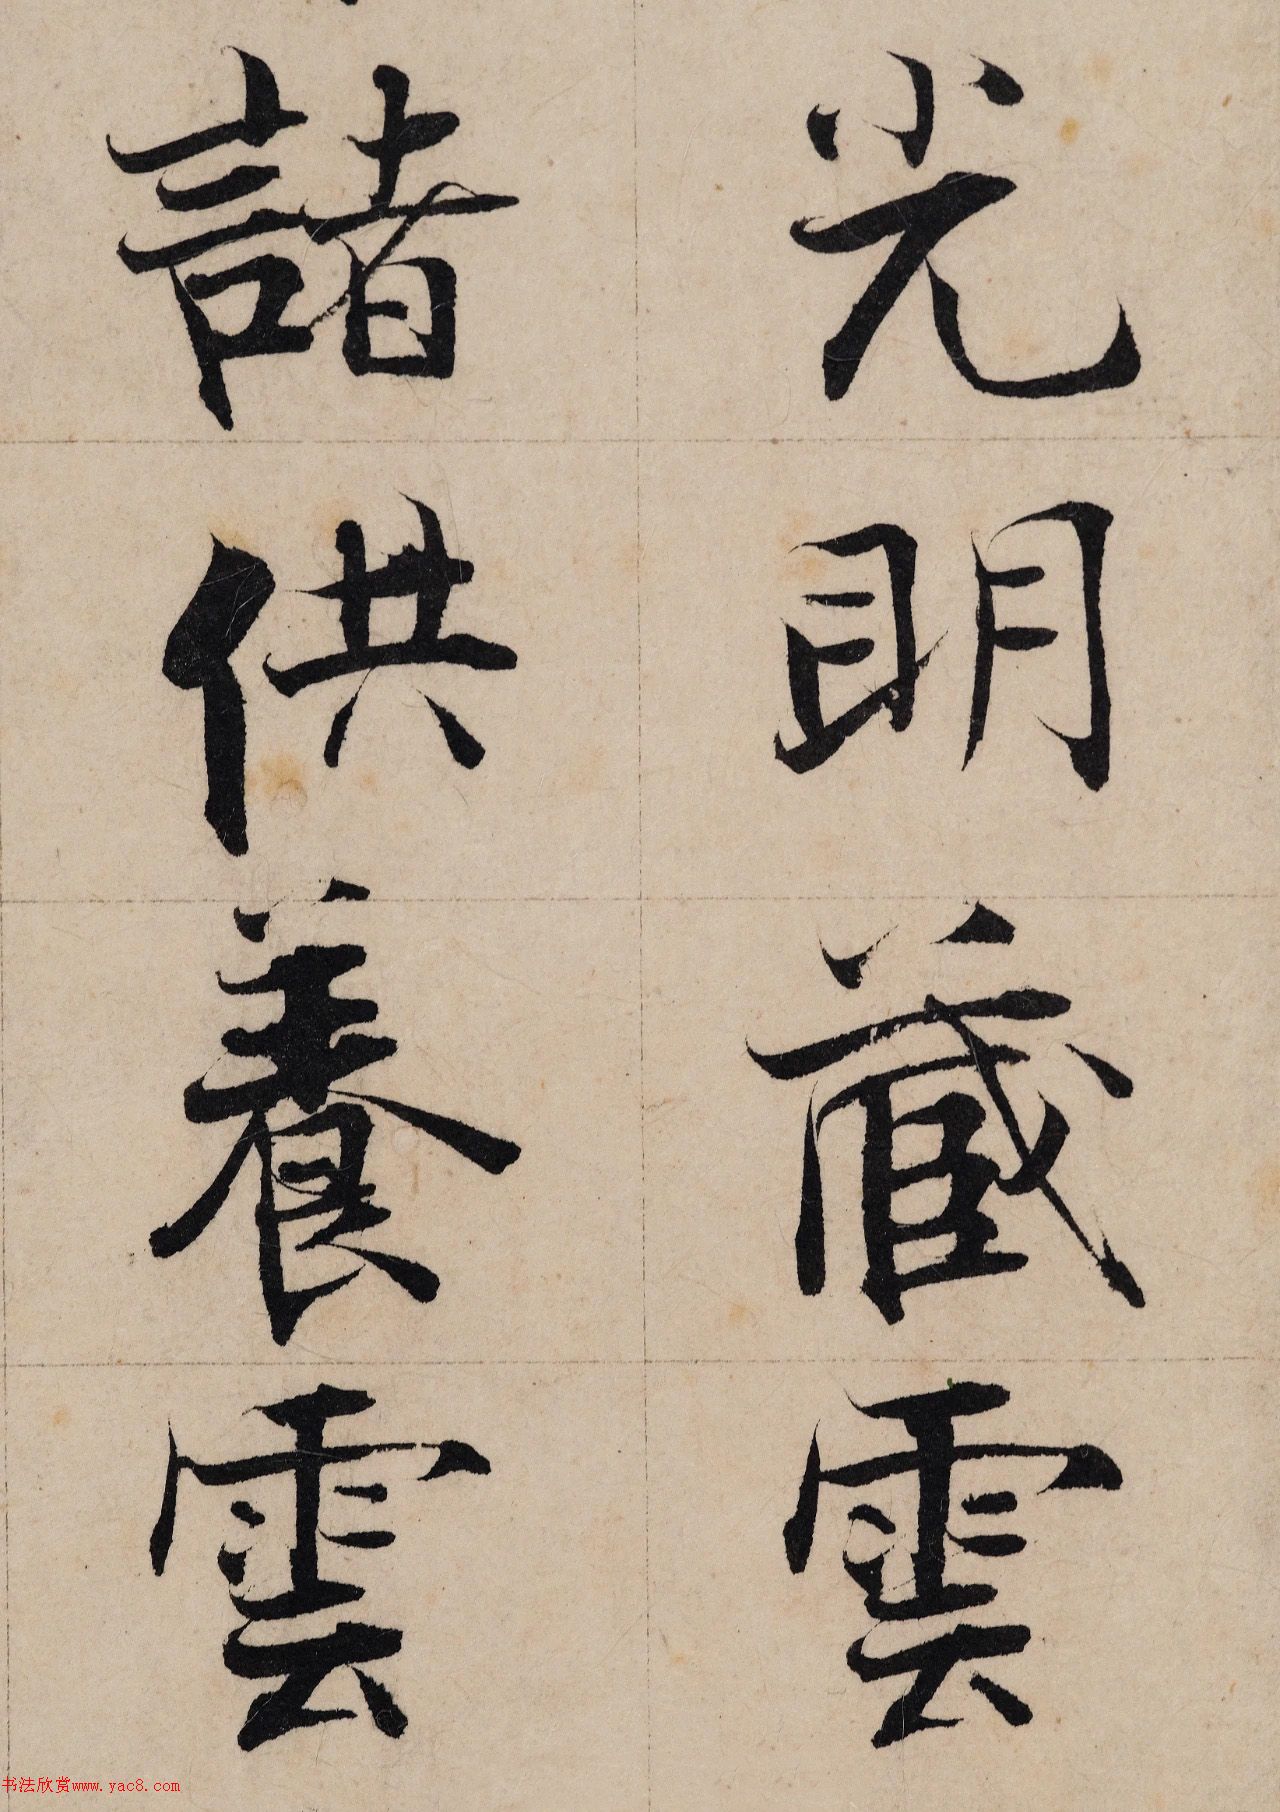 光明蔵雲
諸供養雲
书法欣赏www.yac8.com